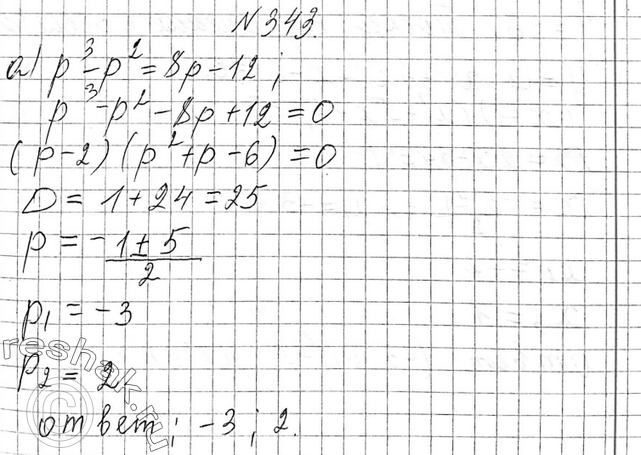 N 343.
а) p³-p²=8p-12;
p³-p²-8p+12=0
(p-2)(p²+p-6)=0
D=1+24=25
p=-1±5/2
p₁=-3
p₂=2
ответ; -3; 2.
reshak.ru